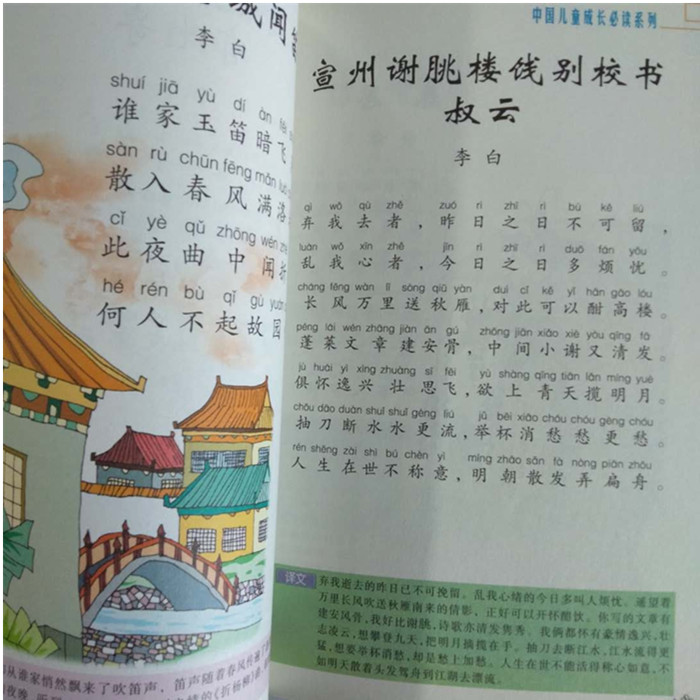 城闻
李白
shuí jiā yù dí àn fēi
谁家玉笛暗飞
sàn rù chūn fēng mǎn luò
散入春风满洛
cǐ yè qǔ zhōng wén zhé
此夜曲中闻折
hé rén bù qǐ gù yuán
何人不起故园
从谁家悄然飘来了吹笛声，笛声随着春风传遍
中国儿童成长必读系列
宣州谢朓楼饯别校书
叔云
李白
qì wǒ qù zhě zuó rì zhī rì bù kě liú
弃我去者，昨日之日不可留，
luàn wǒ xīn zhě jīn rì zhī rì duō fán yōu
乱我心者，今日之日多烦忧。
cháng fēng wàn lǐ sòng qiū yàn duì cǐ kě yǐ hān gāo lóu
长风万里送秋雁，对此可以酣高楼。
péng lái wén zhāng jiàn ān gǔ zhōng jiān xiǎo xiè yòu qīng fā
蓬莱文章建安骨，中间小谢又清发。
jù huái yì xìng zhuàng sī fēi yù shàng qīng tiān lǎn míng yuè
俱怀逸兴壮思飞，欲上青天揽明月。
chōu dāo duàn shuǐ shuǐ gèng liú jǔ bēi xiāo chóu chóu gèng chóu
抽刀断水水更流，举杯消愁愁更愁。
rén shēng zài shì bú chèn yì míng zhāo sàn fà nòng piān zhōu
人生在世不称意，明朝散发弄扁舟。
译文 弃我逝去的昨日已不可挽留。乱我心绪的今日多叫人烦忧。遥望着
万里长风吹送秋雁南来的倩影，正好可以开怀酣饮。你写的文章有
建安风骨，我好比谢朓，诗歌亦清发隽秀。我俩都怀有豪情逸兴、壮
志凌云，想攀登九天，把明月摘揽在手。抽刀去断江水，江水流得更
猛，想要举杯消愁，却是愁上加愁。人生在世不能活得称心如意，不
如明天散着头发驾舟到江湖去漂流。